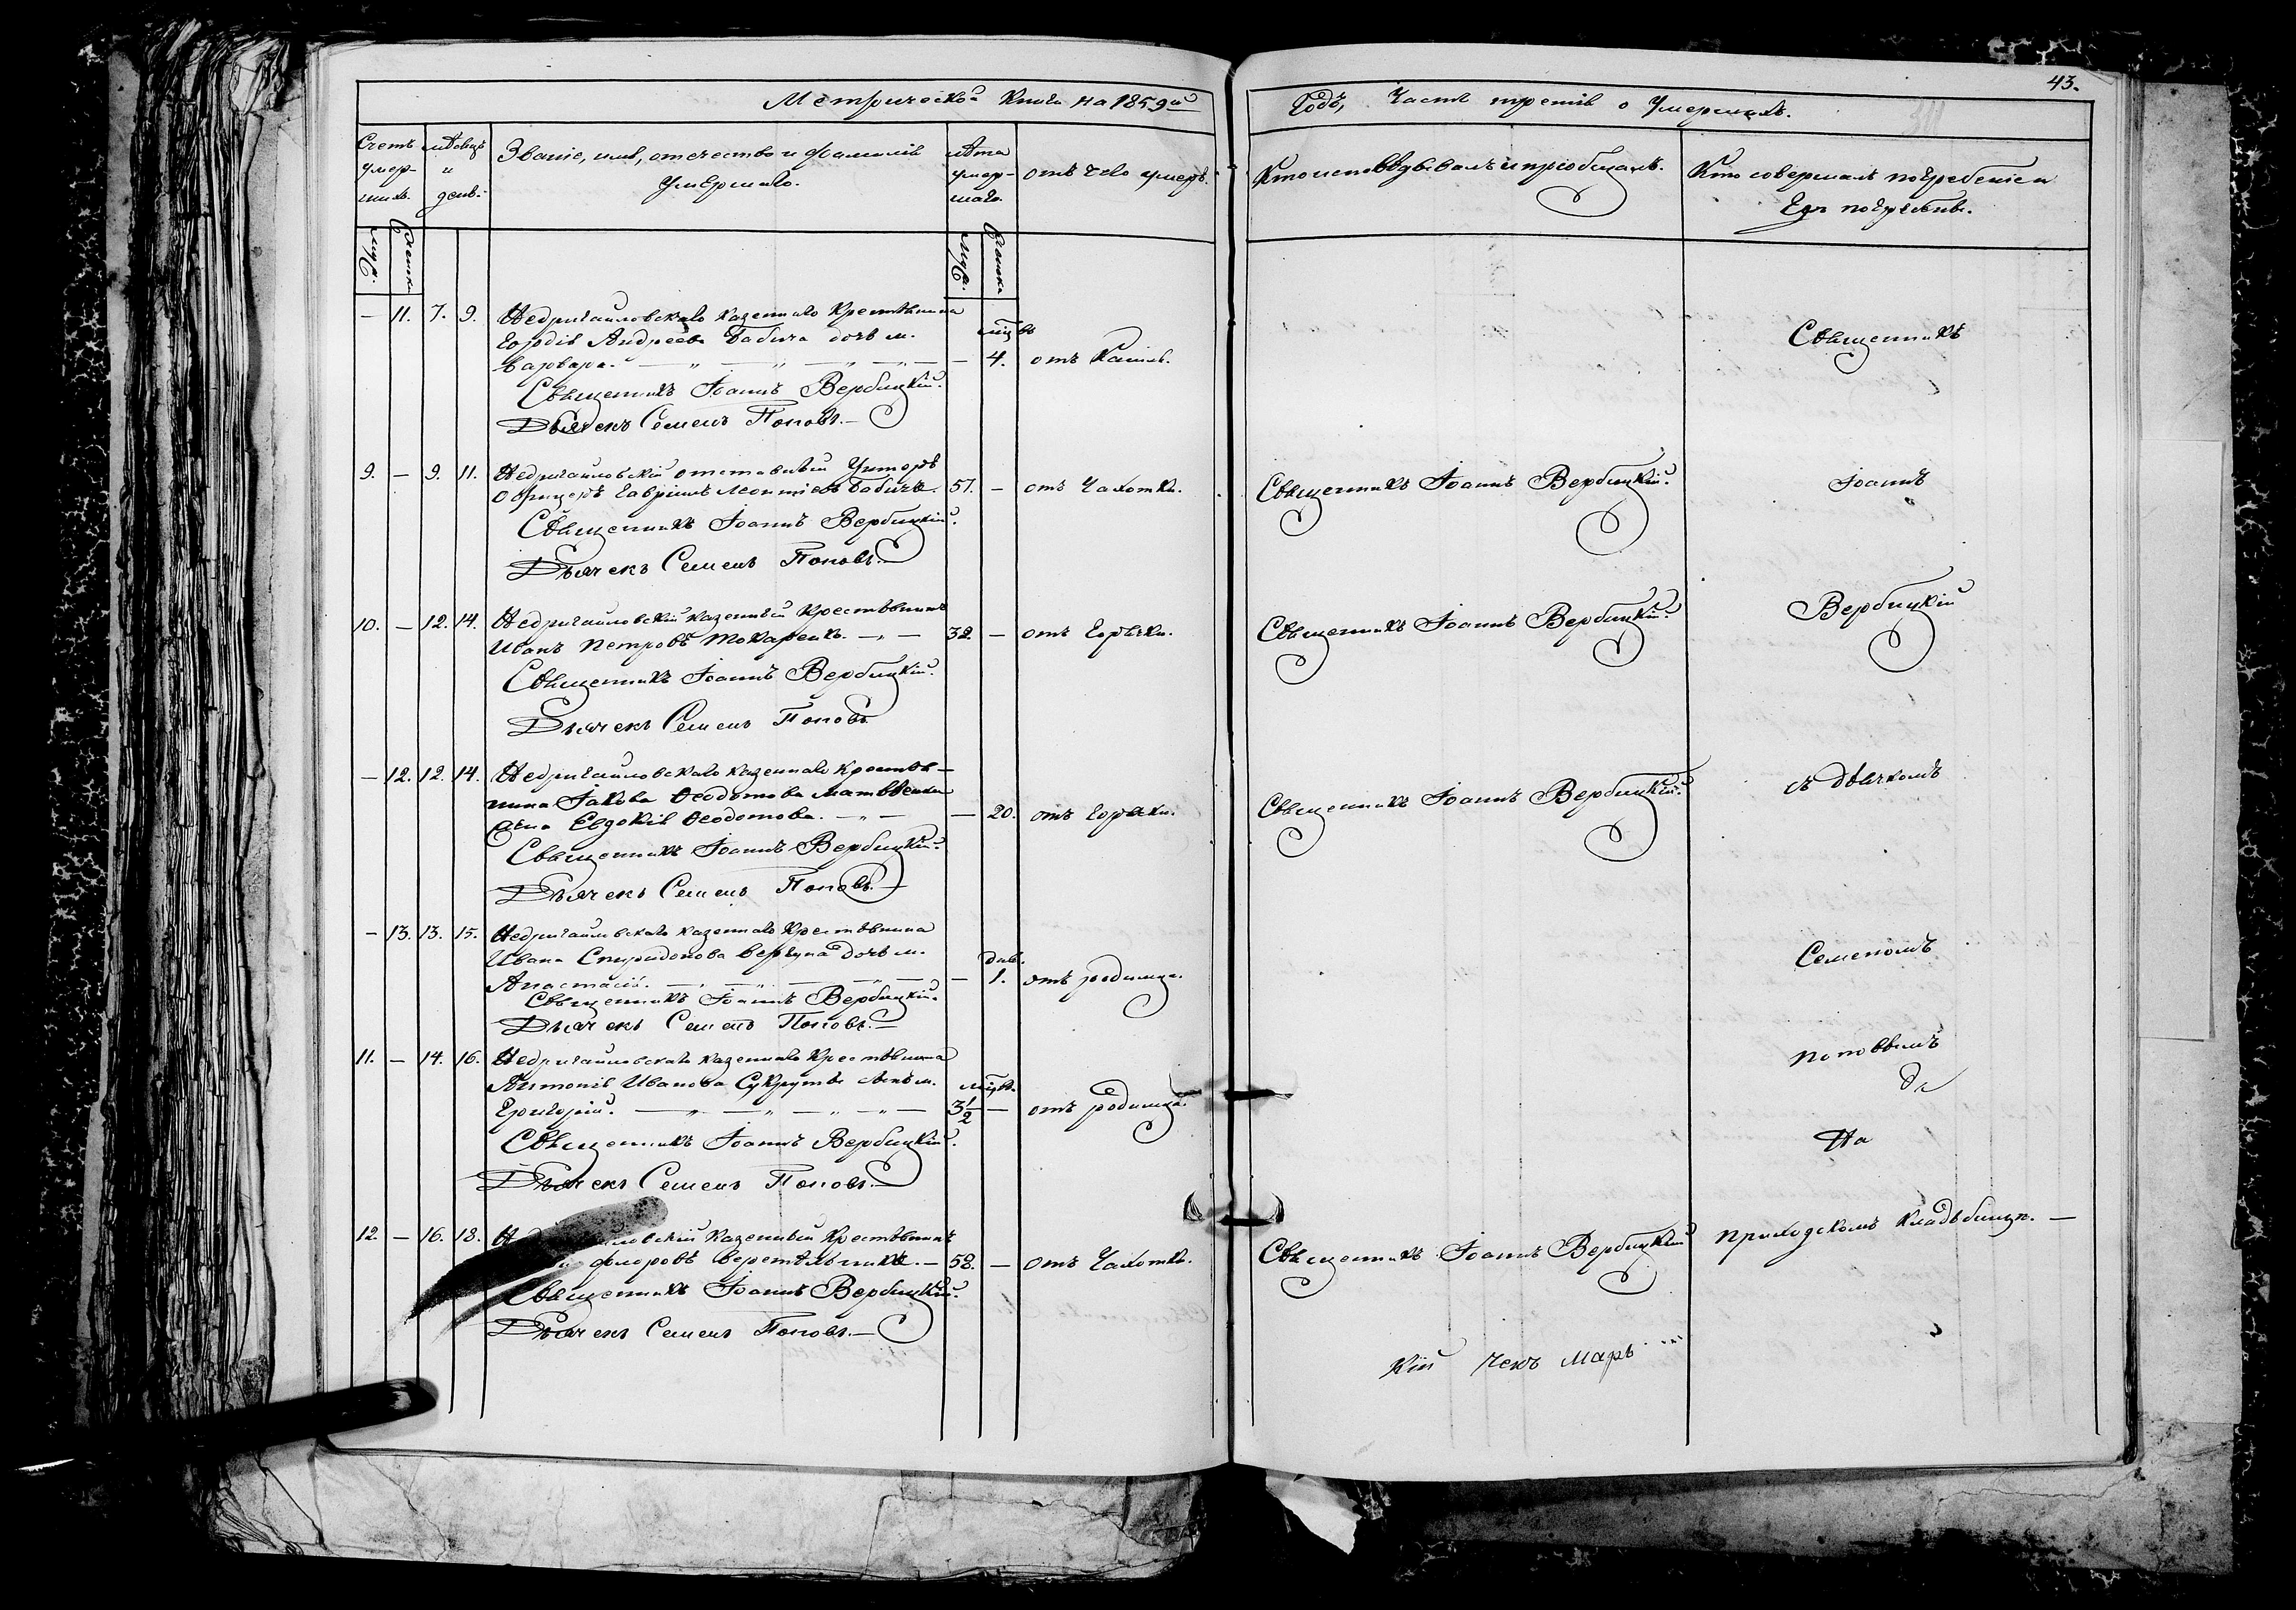 Метрической Книги на 1859й
Годъ, Часть третія о Умершихъ.
43.
Счетъ умер- шихъ.
мѣсяцъ и день.
Званіе, имя, отчество и фамилія
Умершаго.
лѣта умер- шаго.
отъ чего умеръ.
Кто исповѣдывалъ и пріобщалъ.
Кто совершалъ погребеніе и
Где погребены.
Муж.
Женска
Муж.
Женска
— 11. 7. 9. Недригайловскаго казеннаго Крестьянина
Гордія Андреева Бабича дочь м. мцвъ
Варвара. — 4. отъ Кашля.
Священникъ Іоаннъ Вербицкій.
Дьячекъ Семенъ Поповъ.
9. — 9. 11. Недригайловскій отставный Унтеръ
Офицеръ Гавріилъ Леонтіевъ Бабичъ. 57. — отъ Чахотки. Священникъ Іоаннъ Вербицкій.
Священникъ Іоаннъ Вербицкій.
Дьячекъ Семенъ Поповъ.
10. — 12. 14. Недригайловскій казенный Крестьянинъ
Иванъ Петровъ Токаренк. 32. — отъ Горячки. Священникъ Іоаннъ Вербицкій.
Священникъ Іоаннъ Вербицкій.
Дьячекъ Семенъ Поповъ
— 12. 12. 14. Недригайловскаго казеннаго Крестья-
нина Іакова Ѳеодотова Матвѣенка
Евдокія Ѳеодотова. — 20. отъ Горячки. Священникъ Іоаннъ Вербицкій.
Священникъ Іоаннъ Вербицкій.
Дьячекъ Семенъ Поповъ.
— 13. 13. 15. Недригайловскаго казеннаго Крестьянина
Ивана Спиридонова Вергуна дочь м.
Анастасія. — 1. отъ родимца.
Священникъ Іоаннъ Вербицкій.
Дьячекъ Семенъ Поповъ.
11. — 14. 16. Недригайловскаго казеннаго Крестьянина
Антонія Иванова сынъ м. мцвъ.
Григорій. 3 1/2 — отъ родимца.
Священникъ Іоаннъ Вербицкій.
Дьячекъ Семенъ Поповъ.
12. — 16. 18. казенный Крестьянинъ
Федоровъ Веретѣльникъ. — 58. — отъ Чахотки. Священникъ Іоаннъ Вербицкій
Священникъ Іоаннъ Вербицкій.
Дьячекъ Семенъ Поповъ.
Священникъ
Іоаннъ
Вербицкій
съ дьячкомъ
Семеномъ
Поповымъ
На
приходскомъ кладьбищѣ. —
кій чекъ Марь